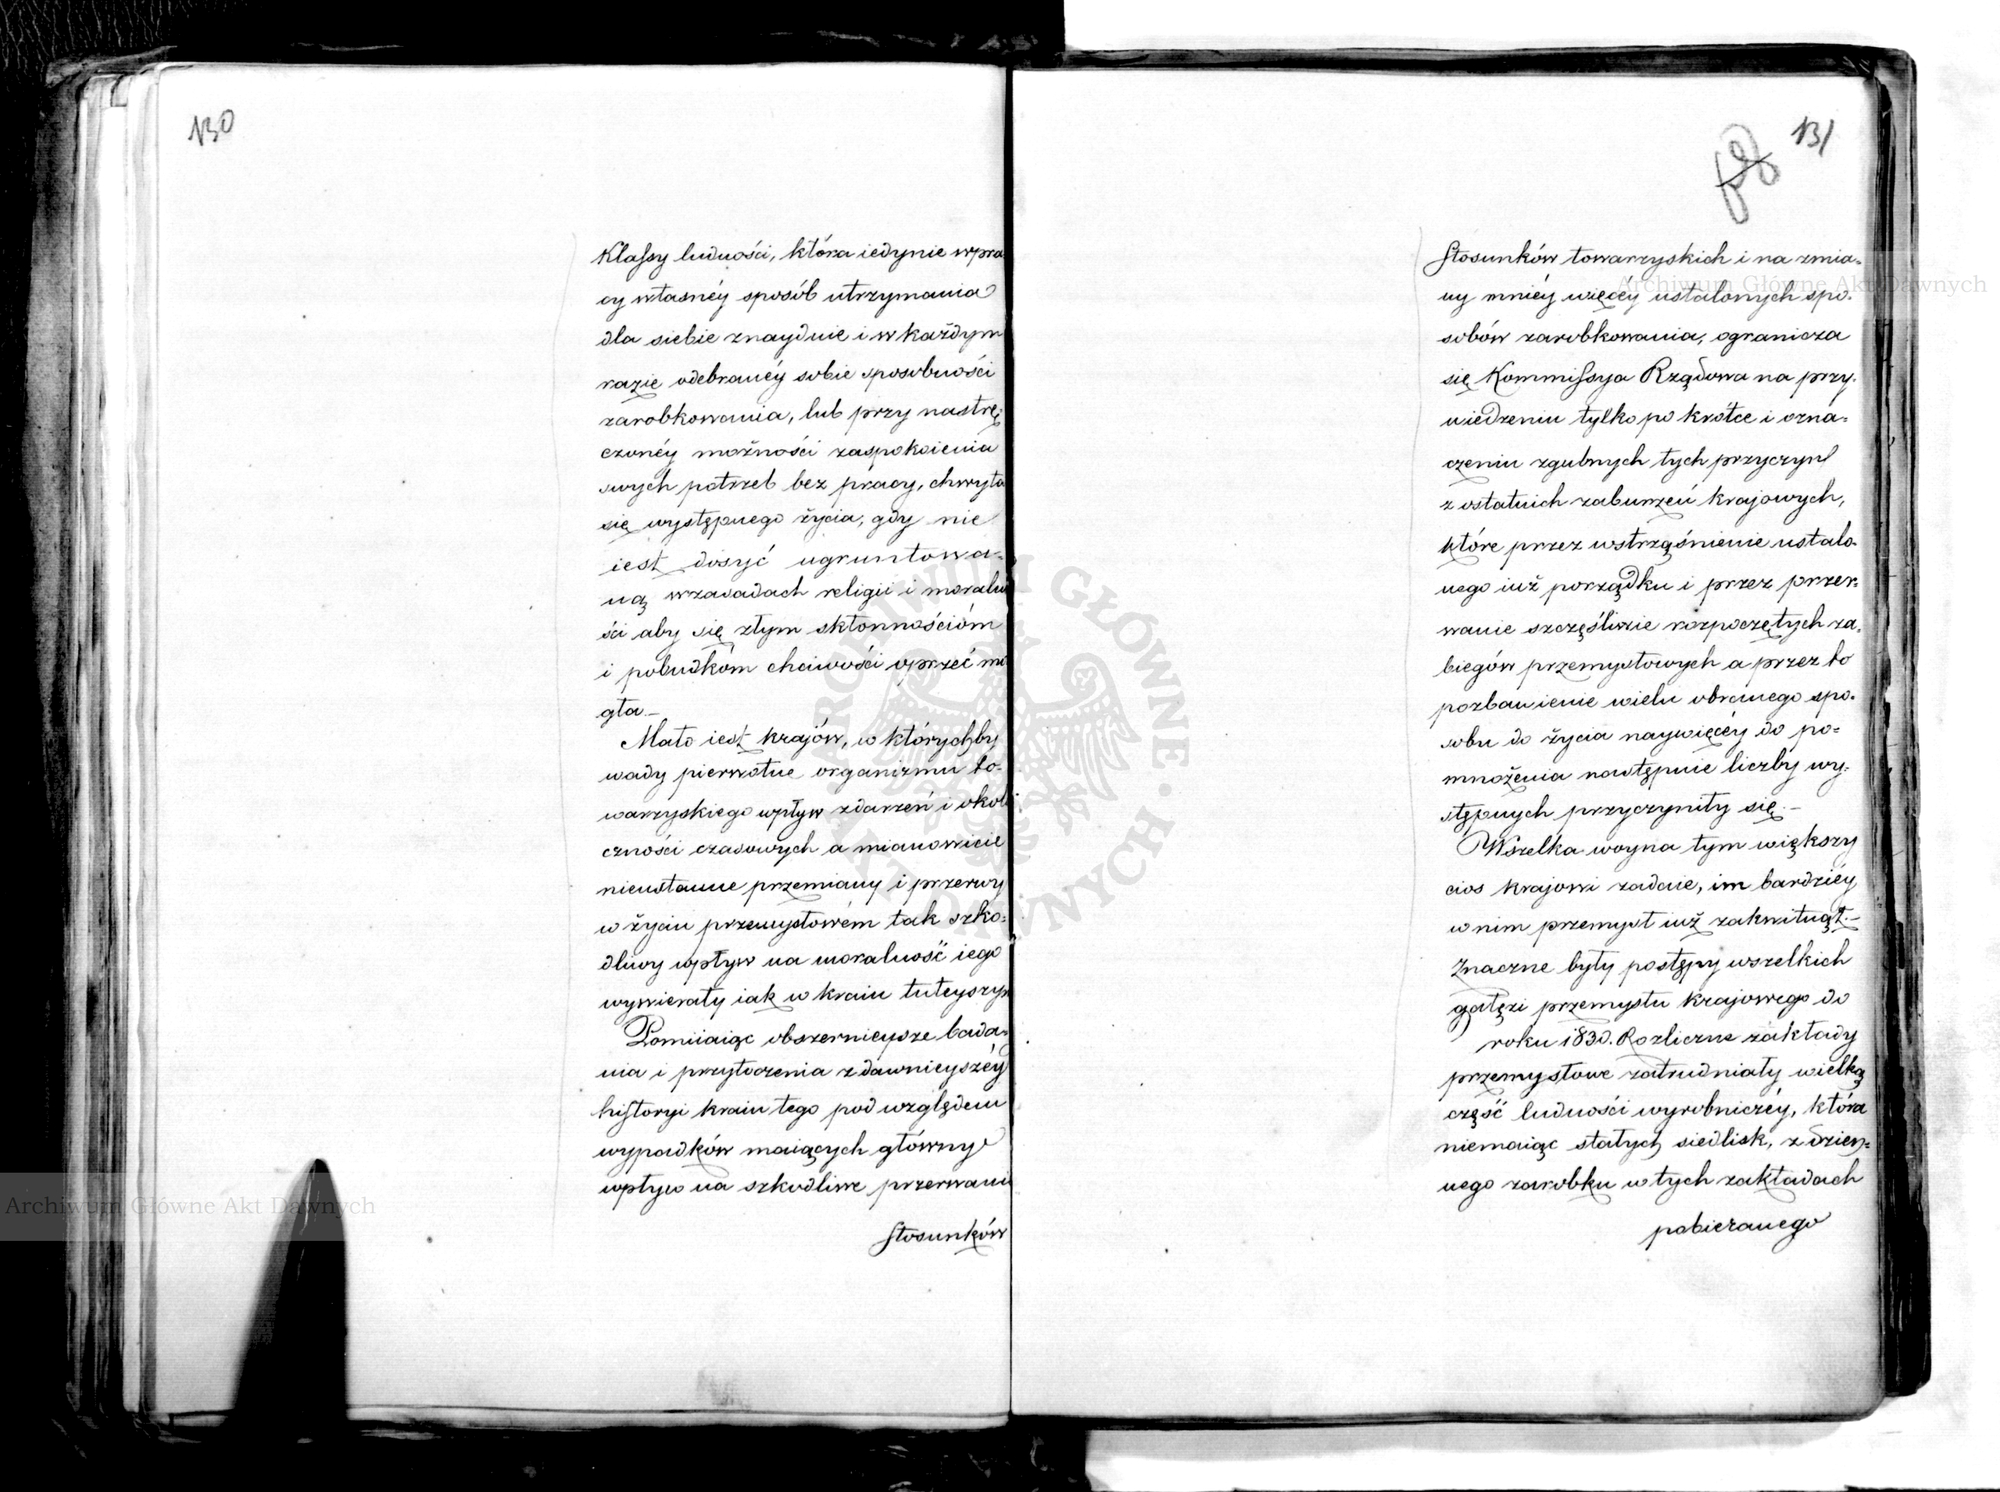 130
Klassy ludności, która iedynie w pra
cy własnéy sposób utrzymania
dla siebie znayduie i w każdym
razie odebranéy sobie sposobności
zarobkowania, lub przy nastrę-
czonéy możności zaspokoienia
swych potrzeb bez pracy, chwyta
się występnego życia, gdy nie
iest dosyć ugruntowa-
ną w zasadach religii i moralno
ści aby się złym skłonnościóm
i pobudkóm chciwości oprzeć mo
gła.—
Mało iest krajów, w którychby
wady pierwotne organizmu to-
warzyskiego wpływ zdarzeń i okoli
czności czasowych a mianowicie
nieustanne przemiany i przerwy
w życiu przemysłowém tak szko-
dliwy wpływ na moralność iego
wywierały iak w kraiu tuteyszym
Pomiiaiąc obszernieysze bada-
nia i przytoczenia z dawnieyszéy
historyi kraiu tego pod względem
wypadków maiących główny
wpływ na szkodliwe przerwanie
stosunków
131
Stosunków towarzyskich i na zmia-
ny mniéy więcéy ustalonych spo-
sobów zarobkowania, ogranicza
się Kommissya Rządowa na przy-
wiedzeniu tylko po krótce i ozna-
czeniu zgubnych tych przyczyn
z ostatnich zaburzeń krajowych,
które przez wstrząśnienie ustalo-
nego iuż porządku i przez przer-
wanie szczęśliwie rozpoczętych za-
biegów przemysłowych a przez to
pozbawienie wielu obranego spo-
sobu do życia naywięcéy do po-
mnożenia następnie liczby wy-
stępnych przyczyniły się.—
Wszelka woyna tym większy
cios krajowi zadaie, im bardziéy
w nim przemysł iuż zakwitnął.—
Znaczne były postępy wszelkich
gałęzi przemysłu krajowego do
roku 1830. Rozliczne zakłady
przemysłowe zatrudniały wielką
część ludności wyrobniczéy, która
niemaiąc stałych siedlisk, z dzien-
nego zarobku w tych zakładach
pobieranego
Archiwum Główne Akt Dawnych
Archiwum Główne Akt Dawnych
ARCHIWUM GŁÓWNE AKT DAWNYCH